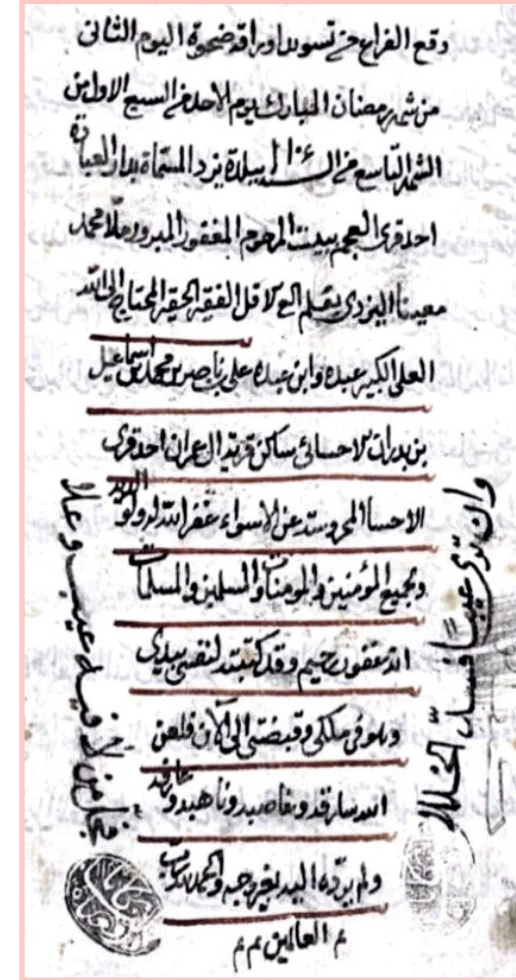 وقع الفراغ من تسويد اوراقه ضحوة اليوم الثانى
من شهر رمضان المبارك يوم الاحد فى السبع الاول من
الشهر التاسع من ببلدة يزد المسماة بدار العبادة
احد قرى العجم ببيت المرحوم المغفور المبرور ملا محمد
اليزدى بقلم الاقل الفقير الحقير المحتاج الى الله
العلى الكبير عبده وابن عبده على بن ناصر بن محمد بن اسماعيل
بن بدران الاحسائى ساكن قرية العمران احد قرى
الاحسا المحروسة عن الاسواء غفر الله له ولوالديه
ولجميع المؤمنين والمومنات والمسلمين والمسلمات
انه غفور رحيم وقد كتبته لنفسى بيدى
وهو فى ملكى وقبضتى الى الآن فلعن
الله سارقه وغاصبه وناهبه و
ولم يرده اليه بغير وجه والحمد لله رب
العالمين م م
وان ترى عيبا فسد الخللا
فجل من لا فيه عيب وعلا